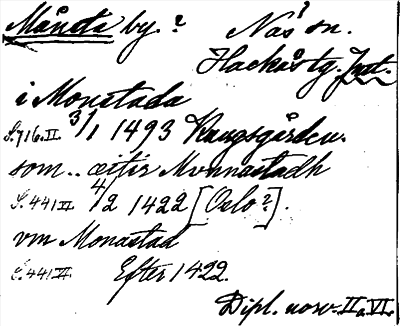 Månsta by. ? Näs sn.
Hackås tg. Jmt.
i Monstada
S. 716. II. 3/1 1493 Kungsgården.
som .. æiter Monnastadh
S. 441 VI 4/2 1422 [Oslo?].
vm Monastad
S. 441 VI Efter 1422.
Dipl. norv. II o. VI.